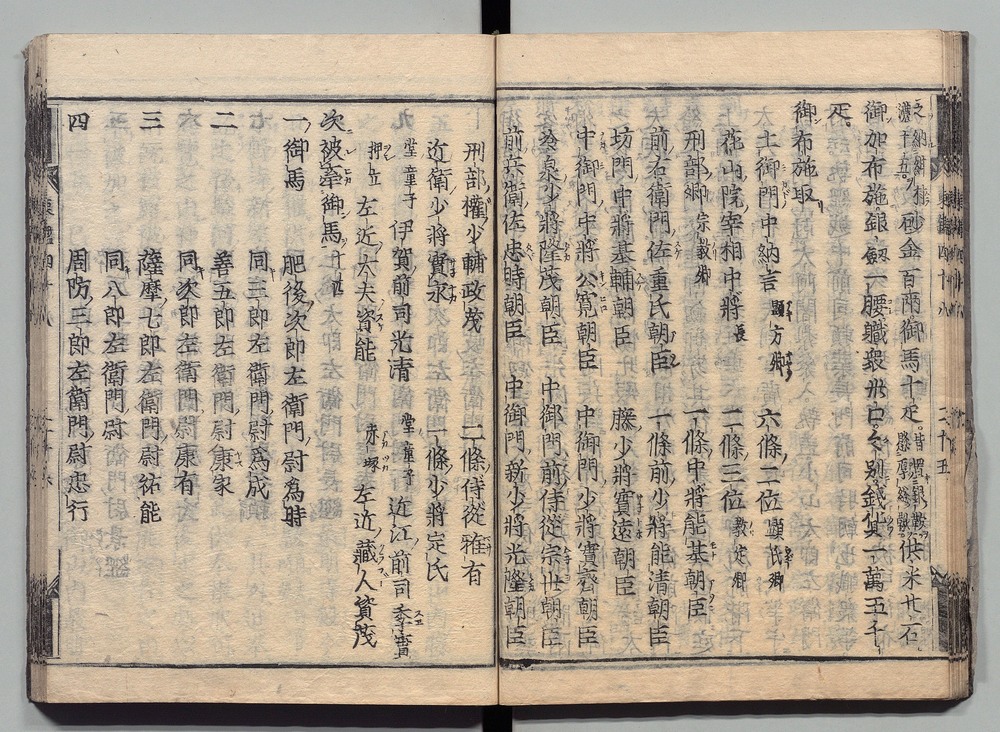 砂金百兩御馬十疋 供米廿石
御加布施銀劔一腰職衆卅口口別錢貨一萬五千
疋
御布施取
土御門中納言顯方卿 六條二位顯氏卿
花山院宰相中將長 二條三位教定卿
刑部卿宗教卿 一條中將能基朝臣
前右衛門佐重氏朝臣 一條前少將能清朝臣
坊門中將基輔朝臣 藤少將實遠朝臣
中御門中將公寛朝臣 中御門少將實齊朝臣
冷泉少將隆茂朝臣 中御門前侍從宗世朝臣
前兵衛佐忠時朝臣 中御門新少將光隆朝臣
刑部權少輔政茂 二條侍從雅有
近衛少將實永 二條少將定氏
堂童子 伊賀前司光清 堂童子 近江前司季實
押立 左近大夫資能 赤塚左近藏人資茂
次被牽御馬十疋
一御馬 肥後次郎左衛門尉爲時
同三郎左衛門尉爲成
二 善五郎左衛門尉康家
同次郎左衛門尉康有
三 薩摩七郎左衛門尉祐能
同八郎左衛門尉
四 周防三郎左衛門尉忠行